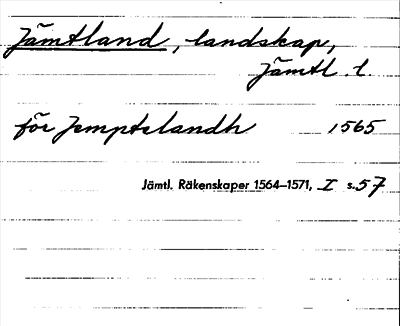 Jämtland, landskap,
Jämtl. l.
för Jemptelandh 1565
Jämtl. Räkenskaper 1564–1571, I s. 57